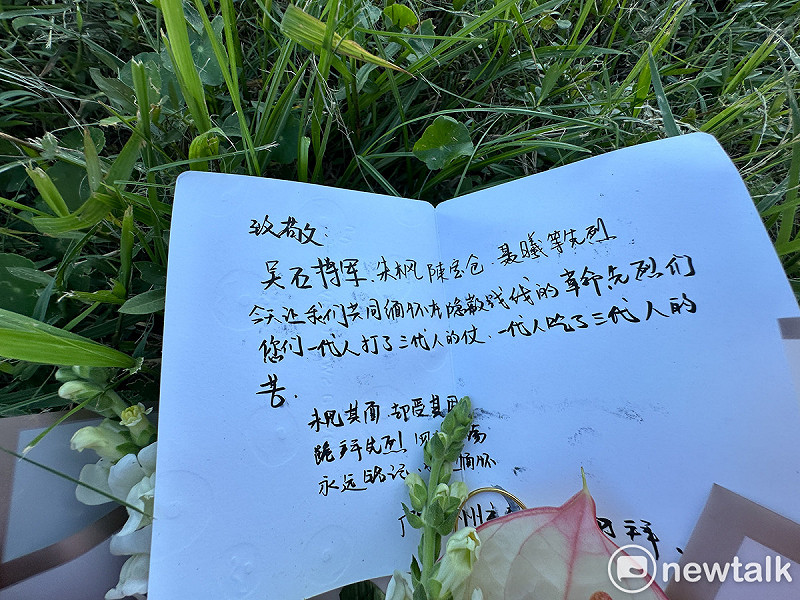 致敬:
吴石将军、朱枫、陳宝仓、聂曦等先烈
今天让我们共同缅怀在隐蔽战线的革命先烈们
您们一代人打了三代人的仗、一代人吃了三代人的
苦.
未见其面 却受其
跪拜先烈
永远铭记 缅怀
广 州
newtalk